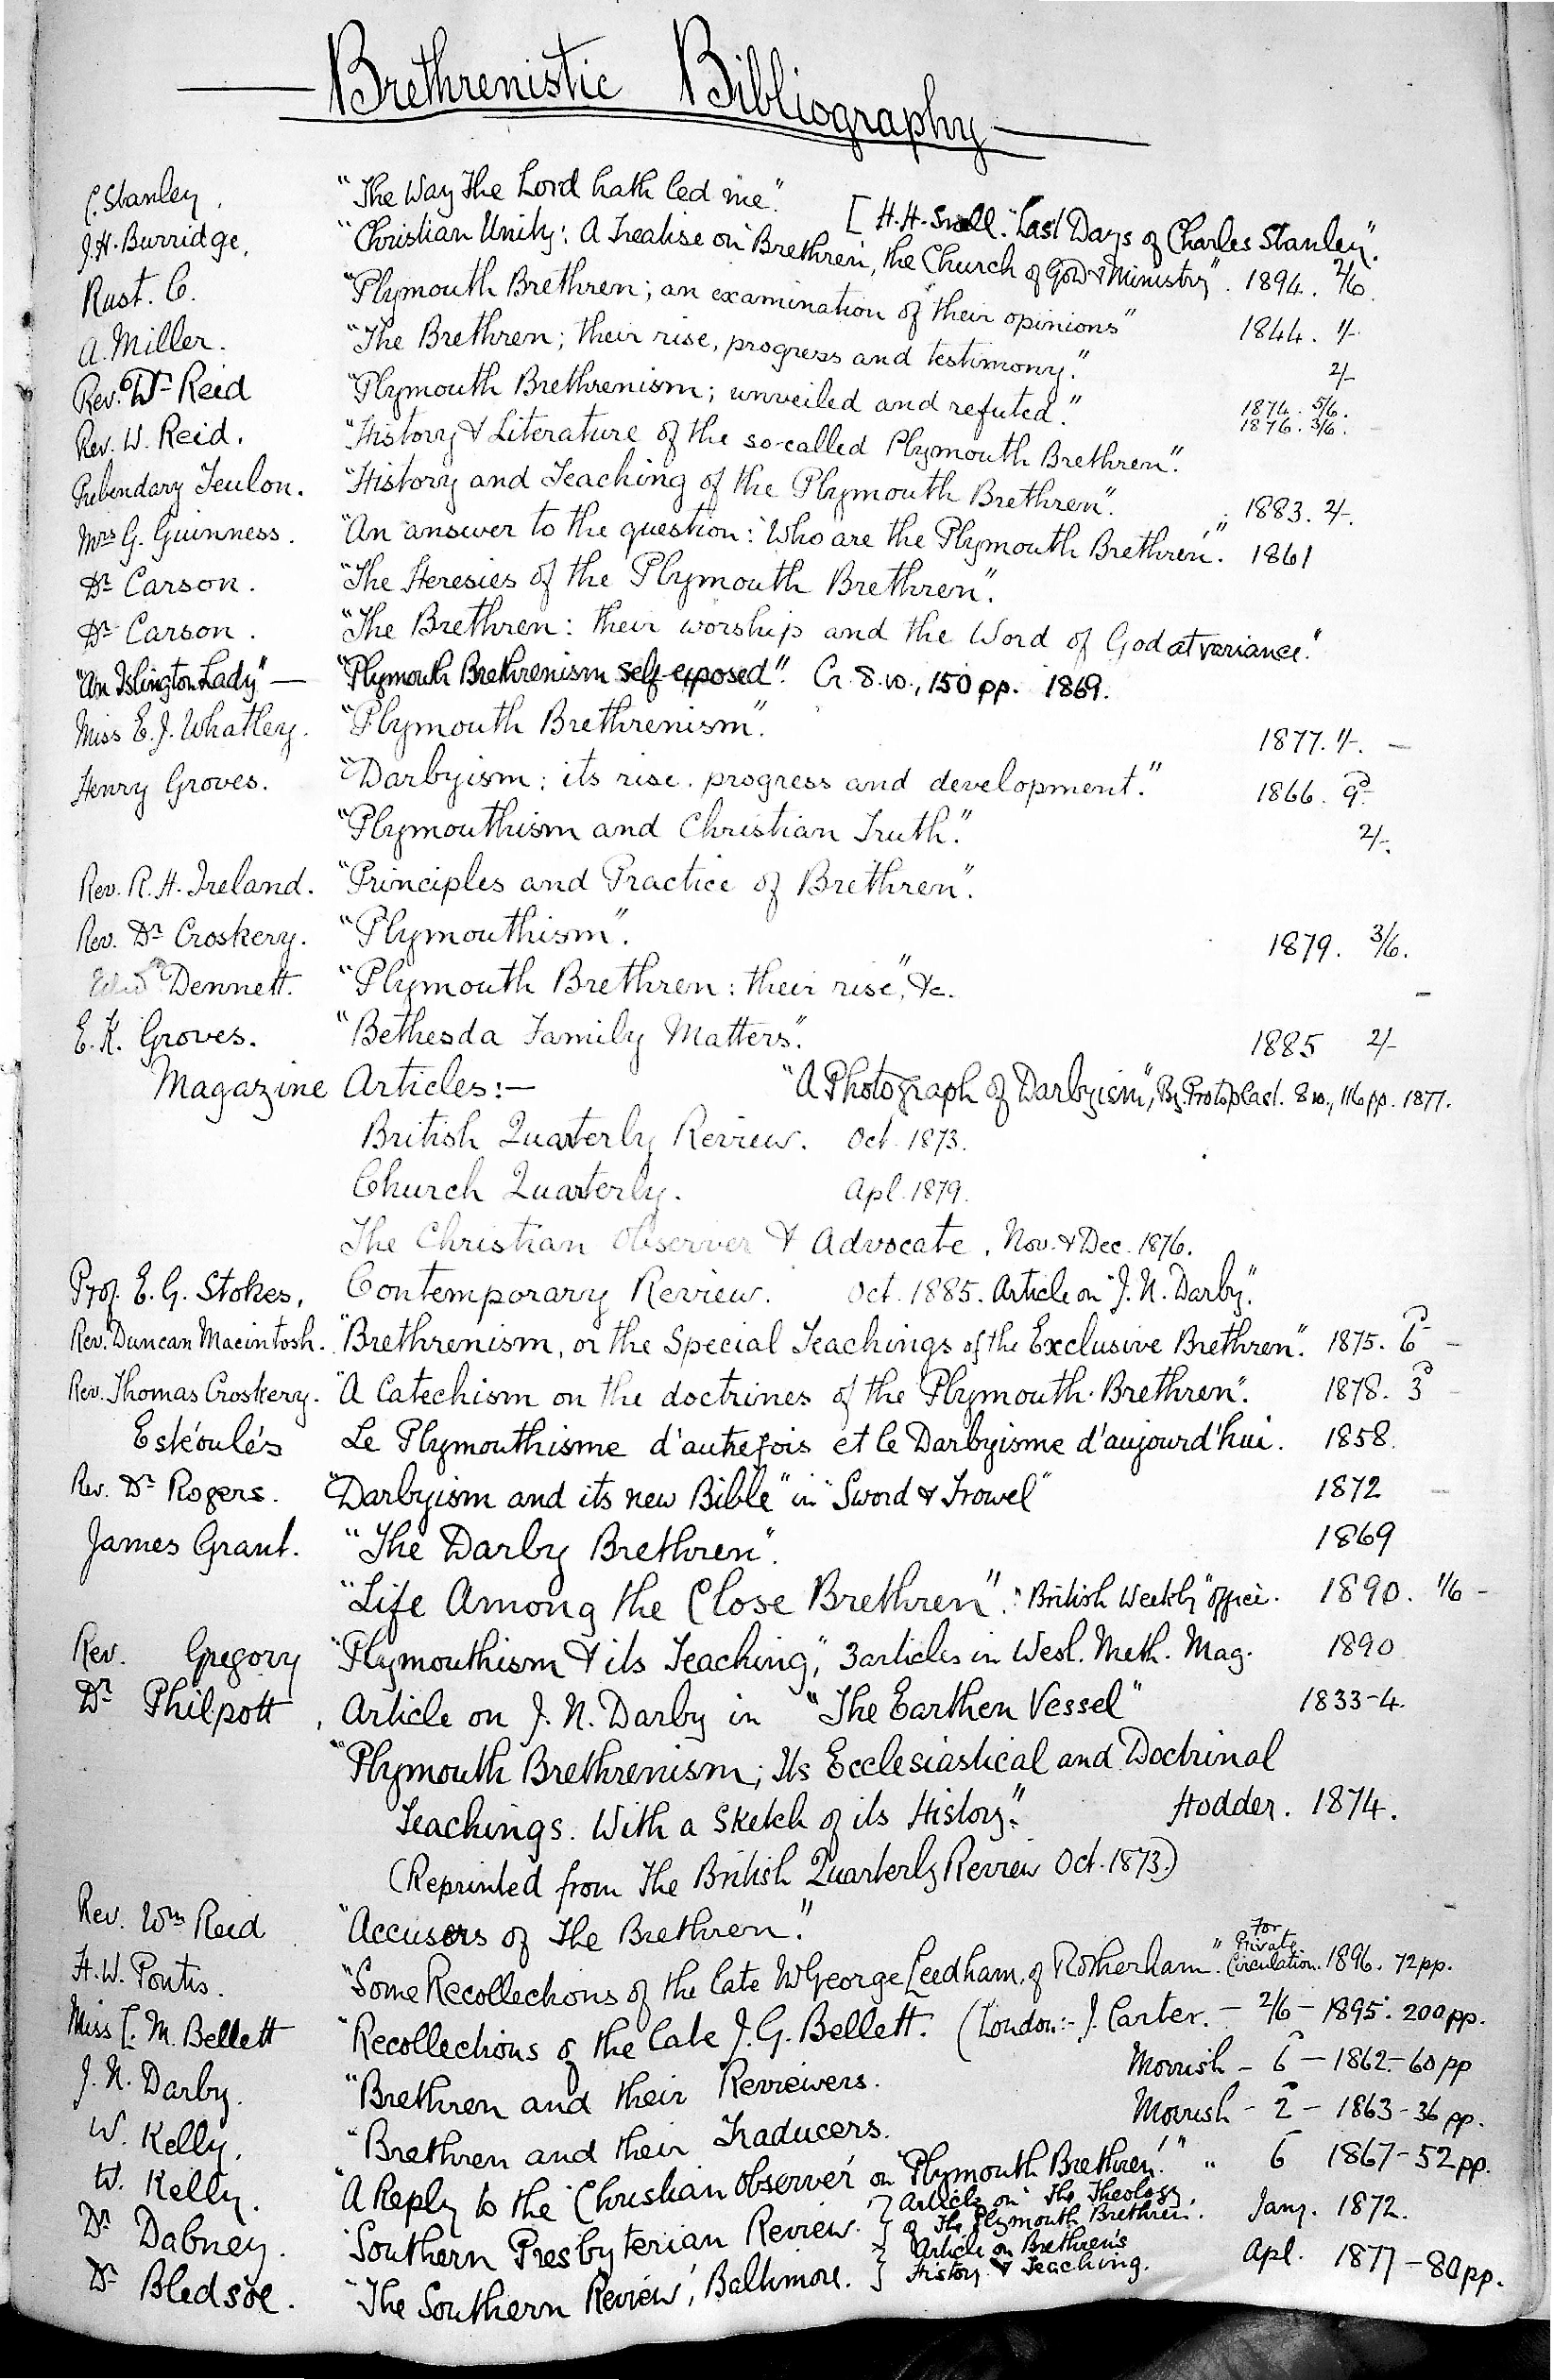 Brethrenistic Bibliography
C. Stanley. "The Way the Lord hath led me". [H.H. Snell. "Last Days of Charles Stanley".
J.H. Burridge. "Christian Unity: A Treatise on Brethren, the Church of God & Ministry". 1894. 2/6.
Rust. C. "Plymouth Brethren; an examination of their opinions" 1844. 1/-
A. Miller. "The Brethren; their rise, progress and testimony." 2/-
Rev. Wm Reid "Plymouth Brethrenism; unveiled and refuted." 1874. 5/6. 1876. 3/6.
Rev. W. Reid. "History & Literature of the so-called Plymouth Brethren".
Prebendary Teulon. "History and Teaching of the Plymouth Brethren". 1883. 2/-.
Mrs G. Guinness. "An answer to the question: 'Who are the Plymouth Brethren'". 1861
Dr Carson. "The Heresies of the Plymouth Brethren".
Dr Carson. "The Brethren: their worship and the Word of God at variance."
"An Islington Lady" — "Plymouth Brethrenism self-exposed". Cr. 8.vo., 150 pp. 1869.
Miss E.J. Whatley. "Plymouth Brethrenism". 1877. 1/-. —
Henry Groves. "Darbyism: its rise. progress and development." 1866. 9d
"Plymouthism and Christian Truth." 2/-.
Rev. R.H. Ireland. "Principles and Practice of Brethren".
Rev. Dr Croskery. "Plymouthism". 1879. 3/6.
Dennett. "Plymouth Brethren: their rise", &c. —
E.K. Groves. "Bethesda Family Matters". 1885 2/-
Magazine Articles:— "A Photograph of Darbyism", By Protoplast. 8vo., 116 pp. 1877.
British Quarterly Review. Oct. 1873.
Church Quarterly. Apl. 1879.
The Christian Observer & Advocate, Nov. & Dec. 1876.
Prof. E.G. Stokes, Contemporary Review. Oct. 1885. Article on "J.N. Darby."
Rev. Duncan Macintosh. "Brethrenism, or the Special Teachings of the Exclusive Brethren". 1875. 6d —
Rev. Thomas Croskery. "A Catechism on the doctrines of the Plymouth Brethren". 1878. 3d —
Eskoulés Le Plymouthisme d'autrefois et le Darbyisme d'aujourd'hui. 1858.
Rev. Dr Rogers. "Darbyism and its new Bible" in "Sword & Trowel" 1872 —
James Grant. "The Darby Brethren". 1869
"Life Among the Close Brethren". "British Weekly" office. 1890. 1/6 —
Rev. Gregory "Plymouthism & its Teaching", 3 articles in Wesl. Meth. Mag. 1890
Dr Philpott, Article on J.N. Darby in "The Earthen Vessel" 1833-4.
"Plymouth Brethrenism; Its Ecclesiastical and Doctrinal
Teachings. With a Sketch of its History." Hodder. 1874.
(Reprinted from The British Quarterly Review Oct. 1873.)
Rev. Wm Reid "Accusers of The Brethren."
H.W. Pontis. "Some Recollections of the late Mr George Leedham, of Rotherham". For Private Circulation. 1896. 72pp.
Miss L.M. Bellett "Recollections of the late J.G. Bellett. (London:- J. Carter. — 2/6 — 1895. 200pp.
J.N. Darby. "Brethren and their Reviewers. Morrish — 6d — 1862 — 60pp
W. Kelly. "Brethren and their Traducers. Morrish — 2d — 1863 — 36pp.
W. Kelly. "A Reply to the 'Christian Observer' on "Plymouth Brethren'." " 6d 1867 — 52pp.
Dr Dabney. "Southern Presbyterian Review. } Article on "The Theology of The Plymouth Brethren. Jany. 1872.
Dr Bledsoe. "The Southern Review', Baltimore. } Article on Brethren's History & Teaching. Apl. 1877 — 80pp.